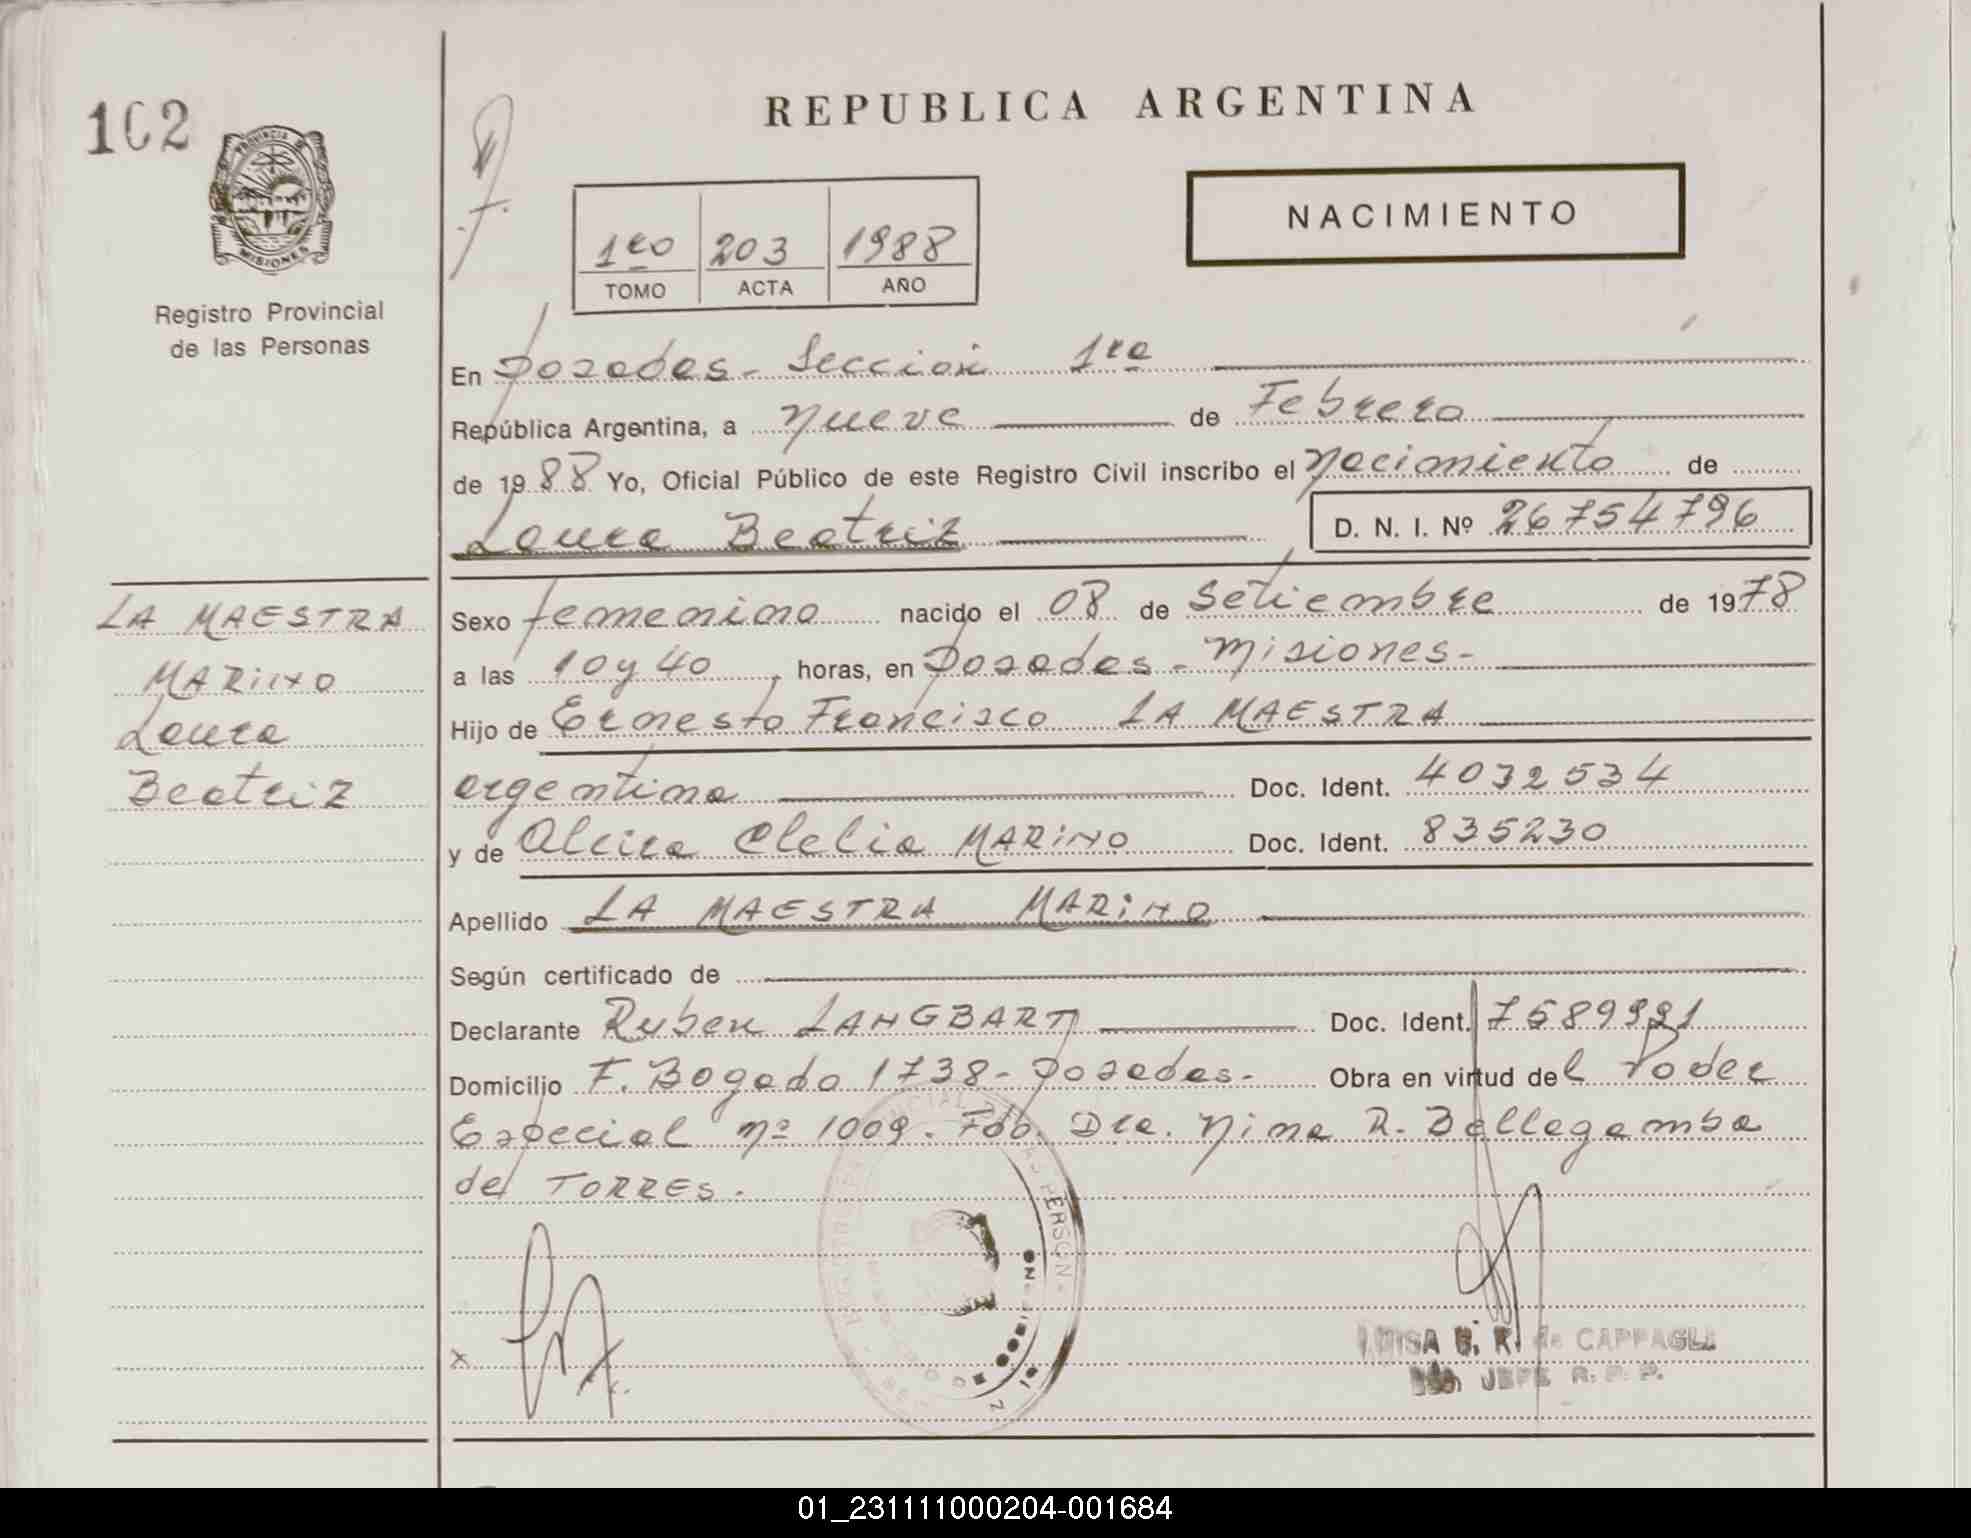 102
REPUBLICA ARGENTINA
PROVINCIA DE
MISIONES
Registro Provincial
de las Personas
NACIMIENTO
1ro 203 1988
TOMO ACTA AÑO
En Posadas - Sección 1ra
República Argentina, a nueve de Febrero
de 1988 Yo, Oficial Público de este Registro Civil inscribo el nacimiento de
Laura Beatriz D. N. I. Nº 26754796
LA MAESTRA
MARIÑO
Laura
Beatriz
Sexo femenino nacido el 08 de Setiembre de 1978
a las 10 y 40 horas, en Posadas - Misiones -
Hijo de Ernesto Francisco LA MAESTRA
argentina Doc. Ident. 4032534
y de Alcira Clelia MARIÑO Doc. Ident. 835230
Apellido LA MAESTRA MARIÑO
Según certificado de
Declarante Ruben LANGBART Doc. Ident. 7589991
Domicilio F. Bogado 1738 - Posadas - Obra en virtud del Poder
Especial nº 1009. Fdo. Dra. Nima R. Bellegamba
de TORRES.
x
LUISA de CAPPAGLI
JEFE R. P. P.
01_231111000204-001684